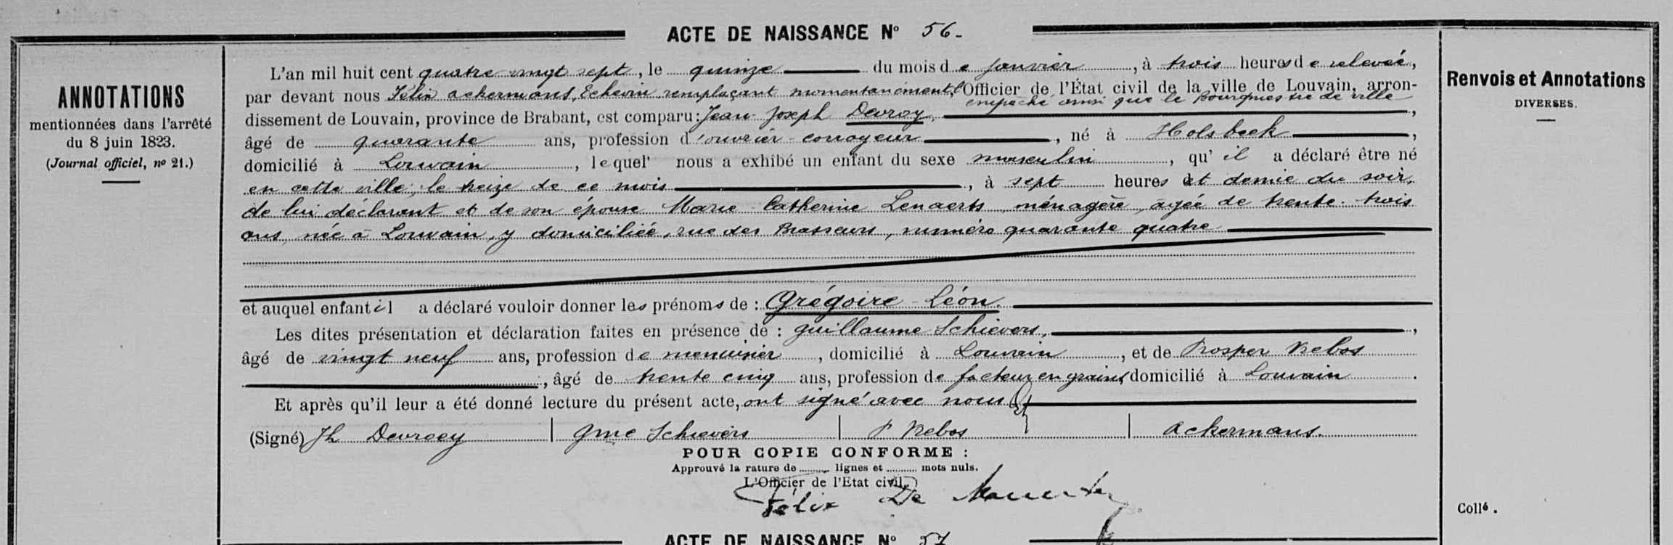 ACTE DE NAISSANCE N° 56.
ANNOTATIONS
mentionnées dans l'arrêté
du 8 juin 1823.
(Journal officiel, n° 21.)
L'an mil huit cent quatre vingt sept, le quinze du mois de janvier, à trois heures de relevée,
par devant nous Félix Ackermans, Echevin remplaçant momentanément l'Officier de l'État civil de la ville de Louvain, arron-
empêché ainsi que le Bourgmestre de ville
dissement de Louvain, province de Brabant, est comparu: Jean Joseph Devroy,
âgé de quarante ans, profession d'ouvrier corroyeur, né à Holsbeek,
domicilié à Louvain, lequel nous a exhibé un enfant du sexe masculin, qu'il a déclaré être né
en cette ville, le treize de ce mois, à sept heures et demie du soir,
de lui déclarant et de son épouse Marie Catherine Lenaerts, ménagère, âgée de trente trois
ans, née à Louvain, y domiciliée, rue des Brasseurs, numéro quarante quatre
et auquel enfant il a déclaré vouloir donner les prénoms de : Grégoire Léon.
Les dites présentation et déclaration faites en présence de : Guillaume Schievers,
âgé de vingt neuf ans, profession de menuisier, domicilié à Louvain, et de Prosper Nebos
, âgé de trente cinq ans, profession de facteur en grains, domicilié à Louvain.
Et après qu'il leur a été donné lecture du présent acte, ont signé avec nous
(Signé) Jh Devroey | Gme Schievers | P Nebos | Ackermans.
POUR COPIE CONFORME :
Approuvé la rature de lignes et mots nuls.
L'Officier de l'Etat civil,
Félix De
ACTE DE NAISSANCE N° 57
Renvois et Annotations
DIVERSES.
Collé.